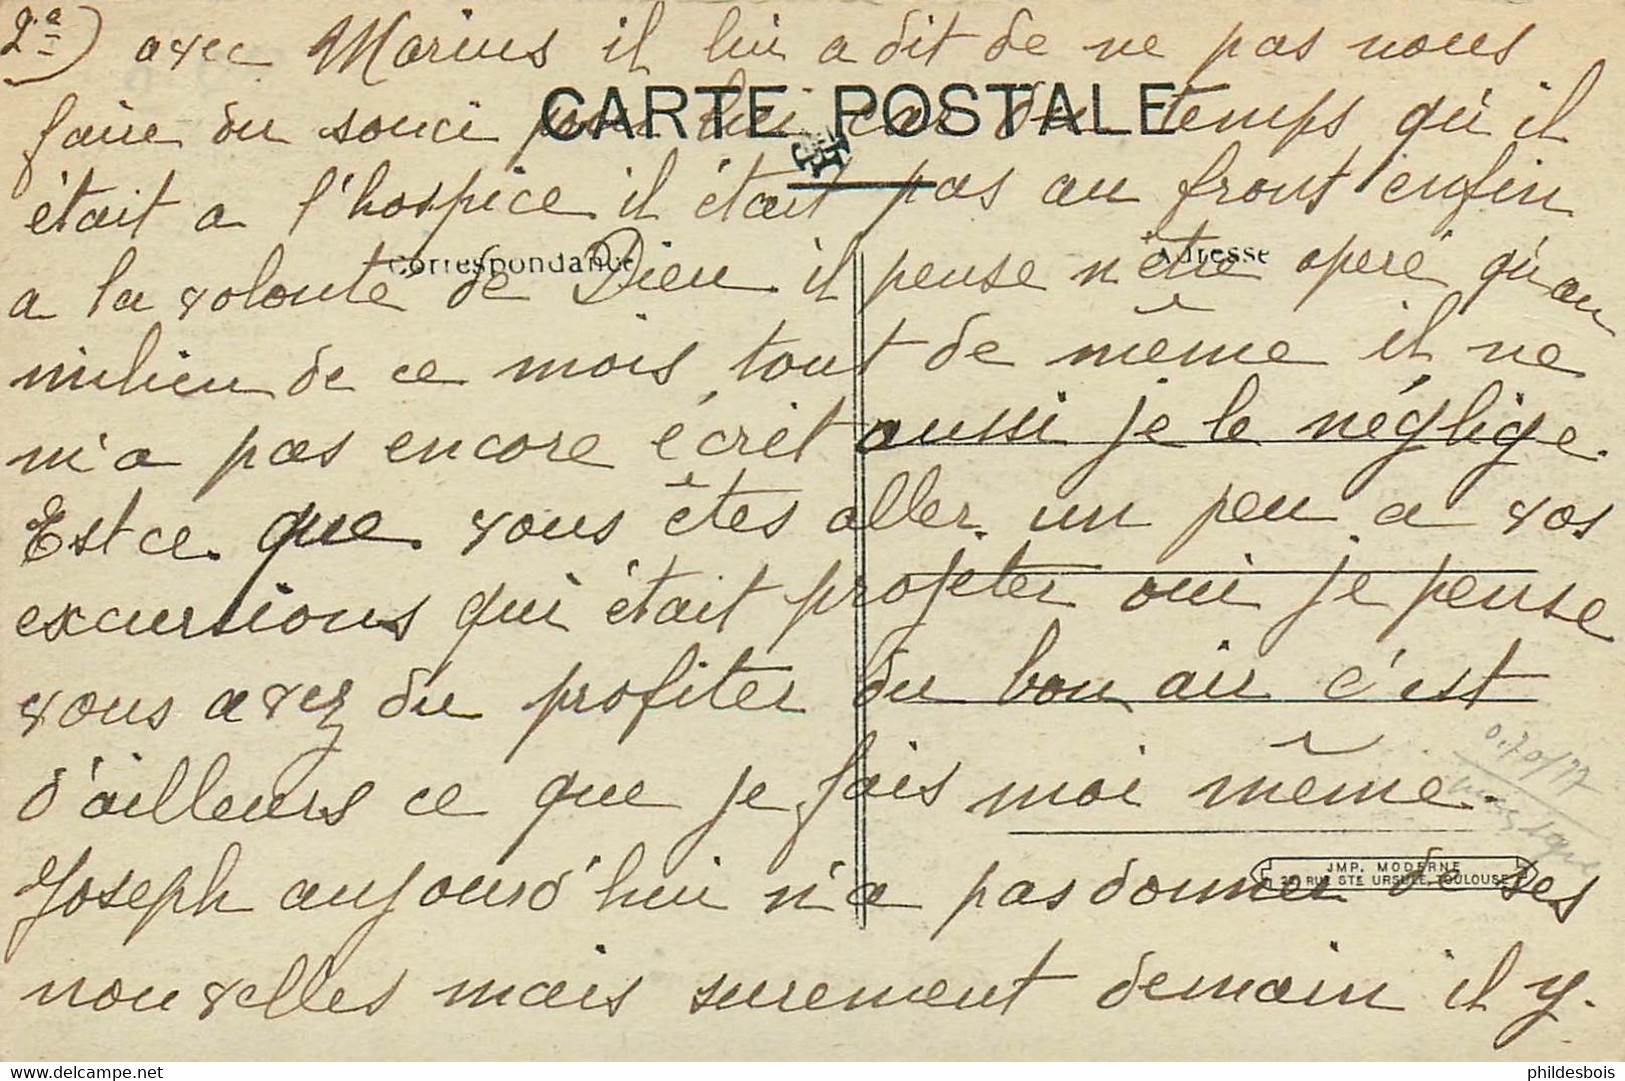 2e) avec Marius il lui a dit de ne pas nous
CARTE POSTALE
faire du souci pour lui car du temps qu'il
était a l'hospice il était pas au front enfin
Correspondance
Adresse
a la volonté de Dieu il pense n'être operé qu'au
milieu de ce mois, tout de même il ne
m'a pas encore écrit aussi je le néglige.
Est ce que vous êtes aller un peu a vos
excursions qui était projeter oui je pense
vous avez du profiter du bon air c'est
d'ailleurs ce que je fais moi même.
0.70/77
JMP. MODERNE
RUE STE URSULE, TOULOUSE
Joseph aujourd'hui n'a pas donner de ses
nouvelles mais surement demain il y.
delcampe.net
phildesbois